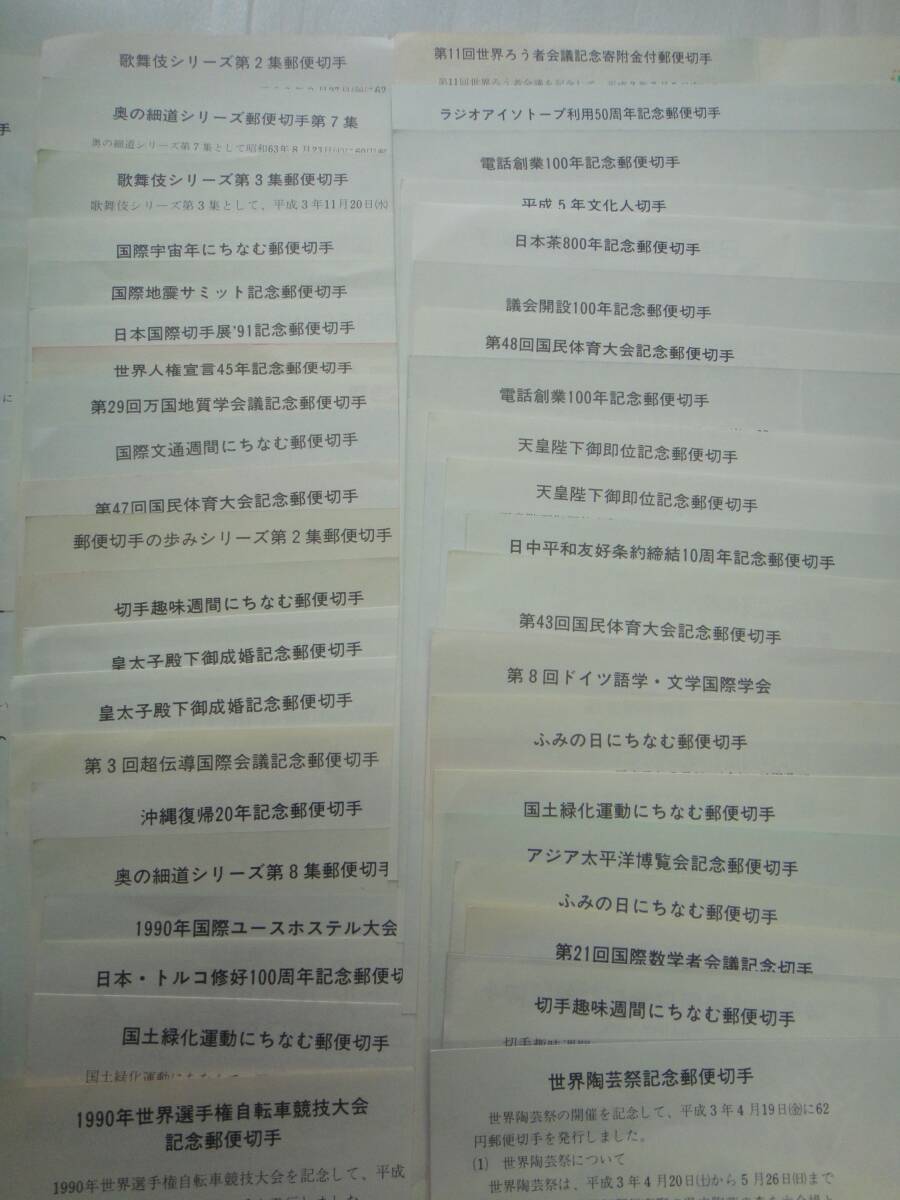 手
に
歌舞伎シリーズ第2集郵便切手
奥の細道シリーズ郵便切手第7集
奥の細道シリーズ第7集として昭和63年8月23日
歌舞伎シリーズ第3集郵便切手
歌舞伎シリーズ第3集として、平成3年11月20日㈬
国際宇宙年にちなむ郵便切手
国際地震サミット記念郵便切手
日本国際切手展'91記念郵便切手
世界人権宣言45年記念郵便切手
第29回万国地質学会議記念郵便切手
国際文通週間にちなむ郵便切手
第47回国民体育大会記念郵便切手
郵便切手の歩みシリーズ第2集郵便切手
切手趣味週間にちなむ郵便切手
皇太子殿下御成婚記念郵便切手
皇太子殿下御成婚記念郵便切手
第3回超伝導国際会議記念郵便切手
沖縄復帰20年記念郵便切手
奥の細道シリーズ第8集郵便切手
1990年国際ユースホステル大会
日本・トルコ修好100周年記念郵便切
国土緑化運動にちなむ郵便切手
国土緑化運動にちなむ
1990年世界選手権自転車競技大会
記念郵便切手
1990年世界選手権自転車競技大会を記念して、平成
第11回世界ろう者会議記念寄附金付郵便切手
第11回世界ろう者会議を記念して、平成3年
ラジオアイソトープ利用50周年記念郵便切手
電話創業100年記念郵便切手
平成5年文化人切手
日本茶800年記念郵便切手
議会開設100年記念郵便切手
第48回国民体育大会記念郵便切手
電話創業100年記念郵便切手
天皇陛下御即位記念郵便切手
天皇陛下御即位記念郵便切手
日中平和友好条約締結10周年記念郵便切手
第43回国民体育大会記念郵便切手
第8回ドイツ語学・文学国際学会
ふみの日にちなむ郵便切手
国土緑化運動にちなむ郵便切手
アジア太平洋博覧会記念郵便切手
ふみの日にちなむ郵便切手
第21回国際数学者会議記念切手
切手趣味週間にちなむ郵便切手
切手趣味週間
世界陶芸祭記念郵便切手
世界陶芸祭の開催を記念して、平成3年4月19日㈮に62
円郵便切手を発行しました。
⑴ 世界陶芸祭について
世界陶芸祭は、平成3年4月20日㈯から5月26日㈰まで